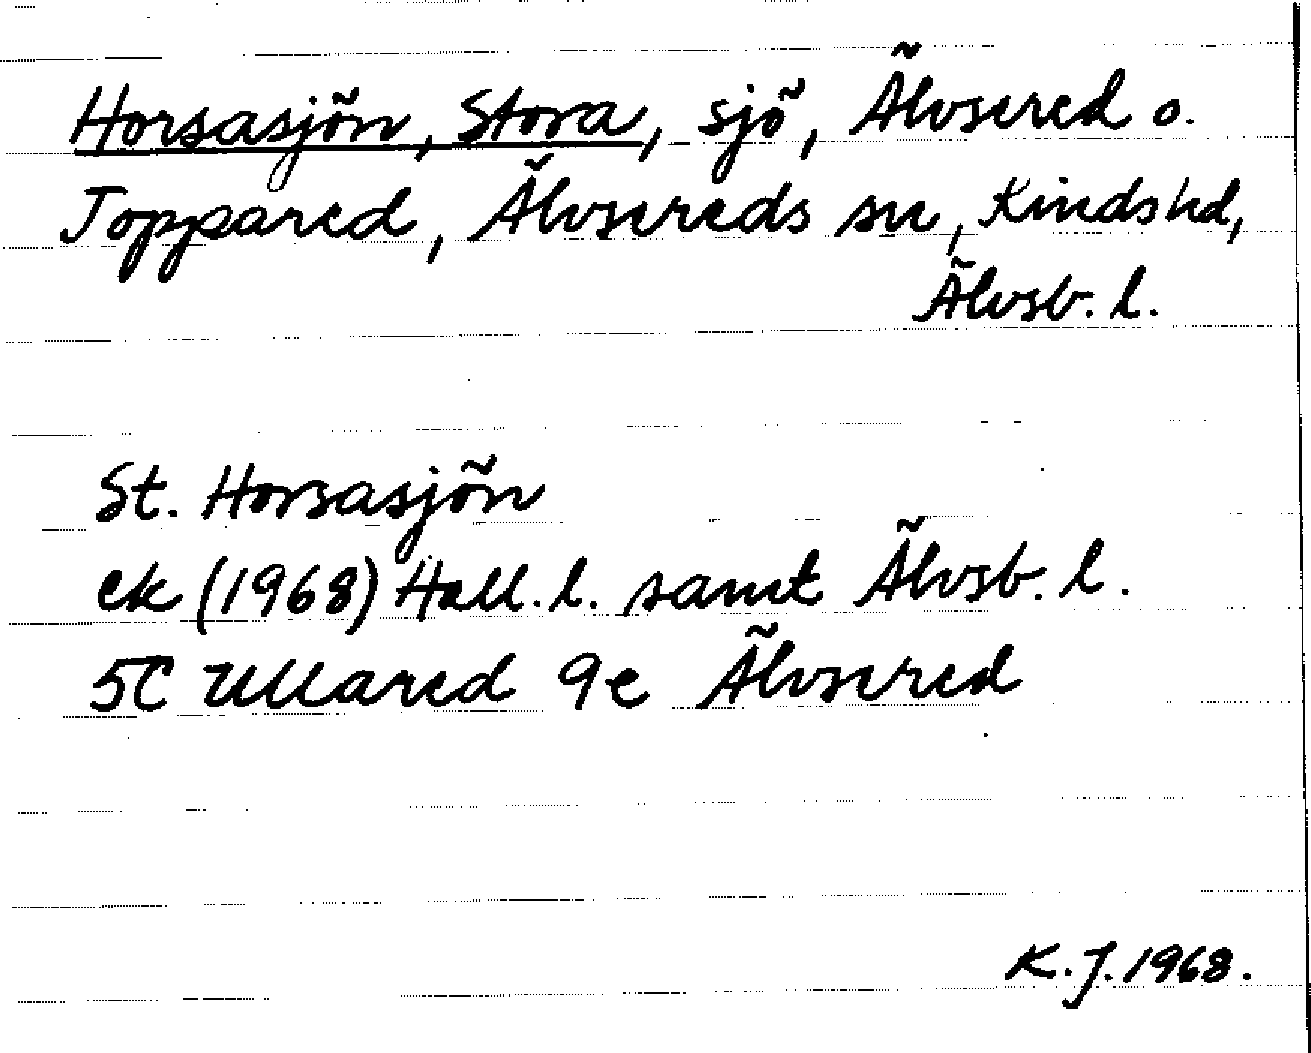 Horsasjön, Stora, sjö, Älvsered o.
Toppared, Älvsereds sn, Kinds hd,
Älvsb. l.
St. Horsasjön
ek (1968) Hall. l. samt Älvsb. l.
5C Ullared 9e Älvsered
K.J. 1968.